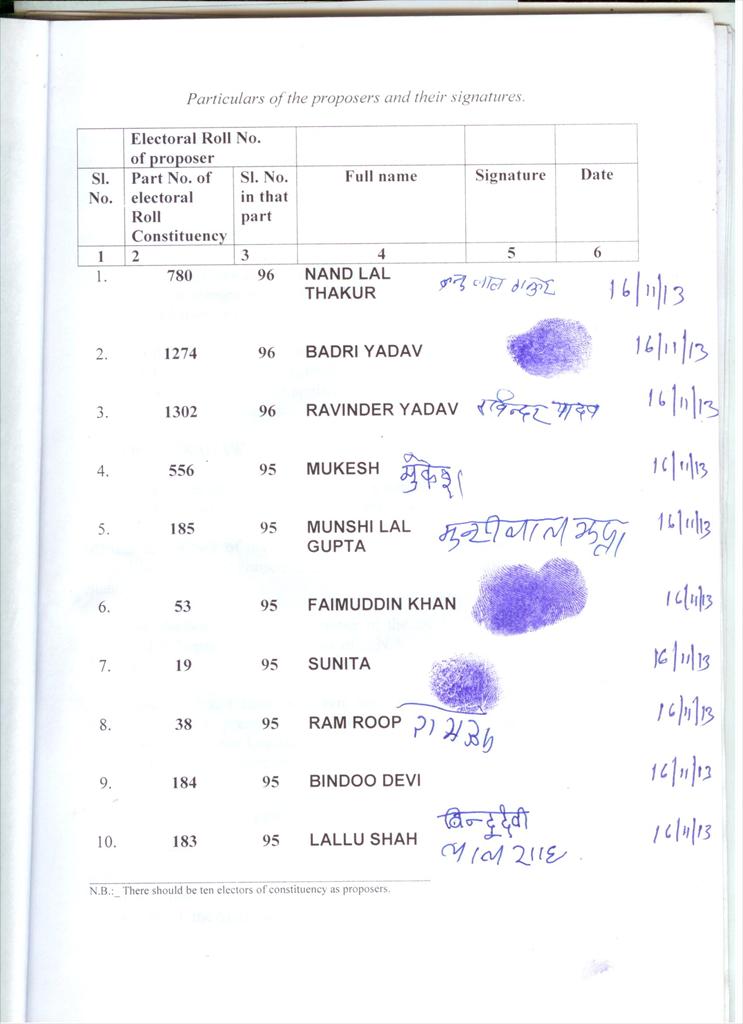 Particulars of the proposers and their signatures.
Electoral Roll No. of proposer
Sl. No. Part No. of electoral Roll Constituency Sl. No. in that part Full name Signature Date
1 2 3 4 5 6
1. 780 96 NAND LAL THAKUR नन्द लाल ठाकुर 16/11/13
2. 1274 96 BADRI YADAV 16/11/13
3. 1302 96 RAVINDER YADAV रविन्दर यादव 16/11/13
4. 556 95 MUKESH मुकेश 16/11/13
5. 185 95 MUNSHI LAL GUPTA 16/11/13
6. 53 95 FAIMUDDIN KHAN 16/11/13
7. 19 95 SUNITA 16/11/13
8. 38 95 RAM ROOP 16/11/13
9. 184 95 BINDOO DEVI 16/11/13
बिन्दू देवी
10. 183 95 LALLU SHAH लाल शाह 16/11/13
N.B.:_ There should be ten electors of constituency as proposers.